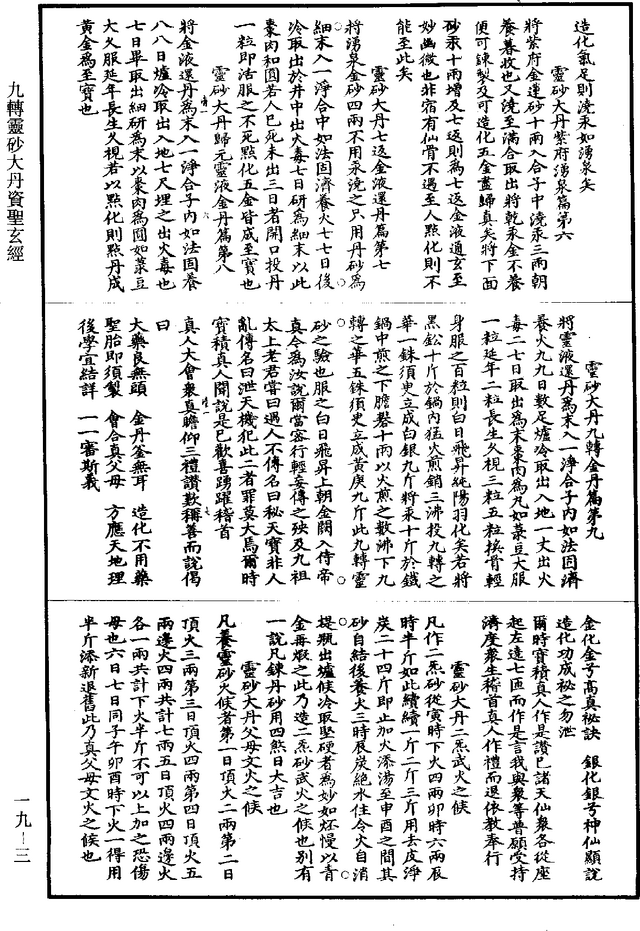 造化氣足則澆汞如湧泉矣
靈砂大丹紫府湧泉篇第六
將紫府金蓮砂十兩入合子中澆汞三兩朝
養暮收也又澆至滿合取出將乾汞金不養
便可鍊製及可造化五金盡歸真矣將下面
砂汞十兩增及七返則為七返金液通玄至
妙幽微也非宿有仙骨不遇至人點化則不
能至此矣
靈砂大丹七返金液還丹篇第七
將湧泉金砂四兩不用汞澆之只用丹砂為
細末入一淨合中如法固濟養火七七日後
冷取出於井中出火毒七日研為細末以此
棗肉和圓若人已死未出三日者開口投丹
一粒即活服之不死點化五金皆成至寶也
靈砂大丹歸元靈液金丹篇第八
將金液還丹為末入一淨合子內如法固養
八八日爐冷取出入地七尺埋之出火毒也
七日畢取出細研為末以棗肉為圓如菉豆
大久服延年長生久視若以點化則點丹成
黃金為至寶也
靈砂大丹九轉金丹篇第九
將靈液還丹為末入一淨合子內如法固濟
養火九九日數足爐冷取出入地一丈出火
毒二七日取出為末棗肉為丸如菉豆大服
一粒延年二粒長生久視三粒五粒換骨輕
身服之百粒則白日飛昇純陽羽化矣若將
黑鈆十斤於鍋內猛火煎銷三沸投九轉之
華一銖須臾立成白銀九斤將汞十斤於鐵
鍋中煎之下膽礬十兩以火煎之數沸下九
轉之華五銖須臾立成黃庚九斤此九轉靈
砂之驗也服之白日飛昇上朝金闕入侍帝
真今為汝說爾當密行輕妄傳之殃及九祖
太上老君嘗曰遇人不傳名曰秘天寶非人
亂傳名曰泄天機犯此二者罪莫大焉爾時
寶積真人聞說是已歡喜踴躍稽首
真人大會衆真瞻仰三禮讚歎稱善而說偈
曰
大藥良無頭 金丹釜無耳 造化不用藥
聖胎即須製 會合真父母 方應天地理
後學宜結詳 一一審斯義
金化金号高真秘訣 銀化銀号神仙顯說
造化功成秘之勿泄
爾時寶積真人作是讚已諸天仙衆各從座
起左遶七匝而作是言我與衆等普願受持
濟度衆生稽首真人作禮而退依教奉行
靈砂大丹二炁武火之候
凡作二炁砂從寅時下火四兩卯時六兩辰
時半斤如此續續一斤二斤三斤用去皮淨
炭二十四斤即止加火添湯至申酉之間其
砂自結後養火三時辰炭絕水住令火自消
提瓶出爐候冷取堅硬者為妙如炻慢以青
金再煅之此乃造二炁砂武火之候也別有
一說凡鍊丹砂用四煞日大吉也
靈砂大丹父母文火之候
凡養靈砂火候者第一日頂火二兩第二日
頂火三兩第三日頂火四兩第四日頂火五
兩邊火四兩共計七兩五日頂火四兩邊火
各一兩共計下火半斤不可以上加之恐傷
母也六日七日同子午卯酉時下火一得用
半斤添新退舊此乃真父母文火之候也
九轉靈砂大丹資聖玄經
一九－三